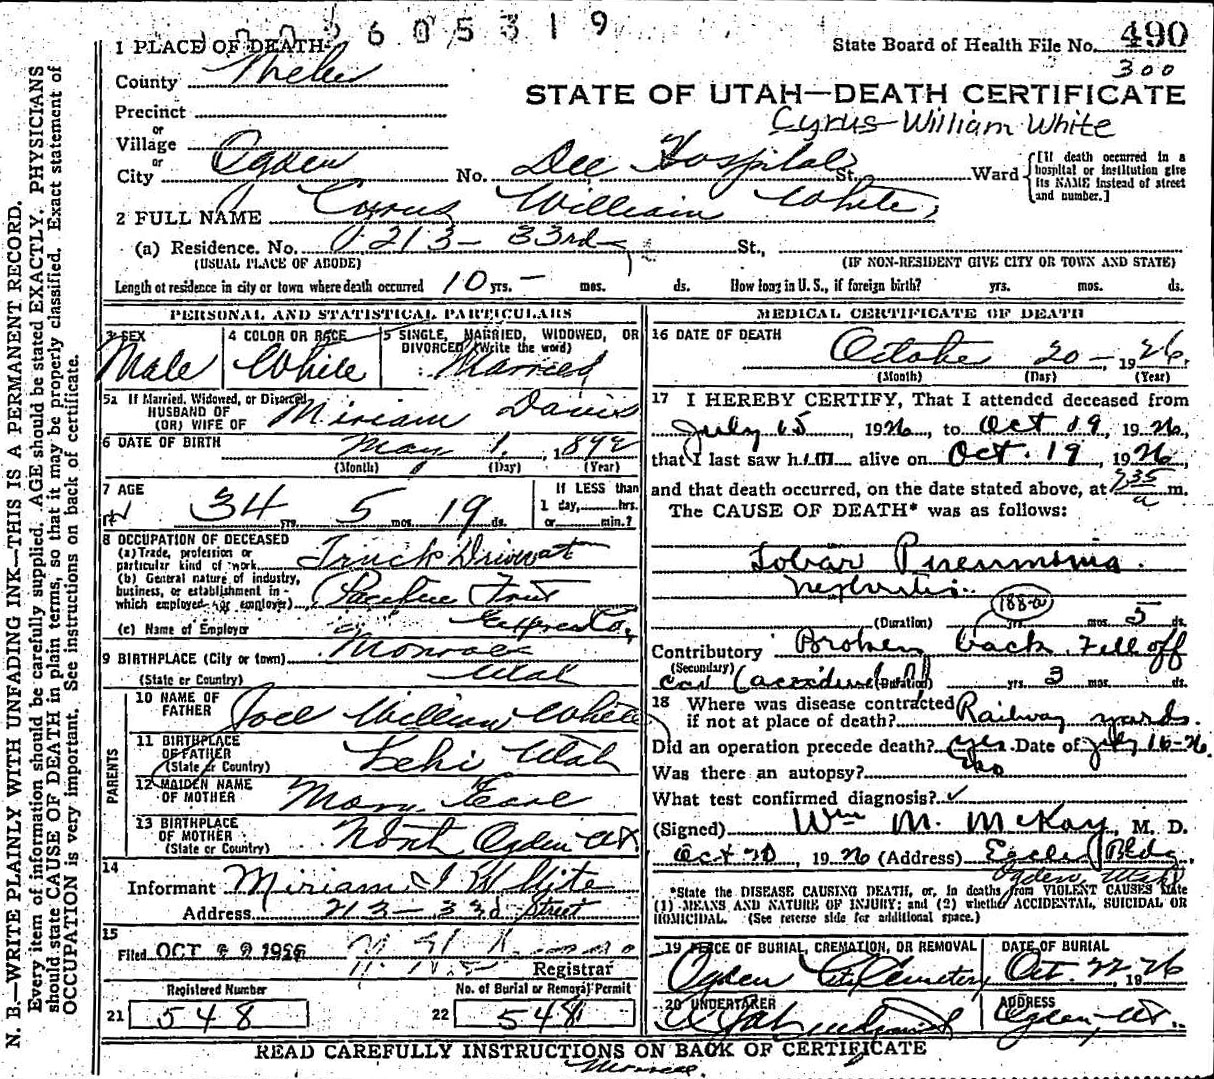 2605319
State Board of Health File No. 490
300
1 PLACE OF DEATH
County
STATE OF UTAH—DEATH CERTIFICATE
Precinct
Cyrus William White
or
Village
or
City Ogden No. Dee Hospital St. Ward
[If death occurred in a hospital or institution give its NAME instead of street and number.]
2 FULL NAME Cyrus William White
(a) Residence. No. 213 - 33rd St.,
(USUAL PLACE OF ABODE) (IF NON-RESIDENT GIVE CITY OR TOWN AND STATE)
Length of residence in city or town where death occurred 10 yrs. - mos. ds. How long in U. S., if foreign birth? yrs. mos. ds.
PERSONAL AND STATISTICAL PARTICULARS
3 SEX Male
4 COLOR OR RACE White
5 SINGLE, MARRIED, WIDOWED, OR DIVORCED (Write the word) Married
5a If Married, Widowed, or Divorced
HUSBAND OF
(OR) WIFE OF Miriam Davis
6 DATE OF BIRTH May 1, 1892
(Month) (Day) (Year)
7 AGE 34 yrs. 5 mos. 19 ds.
If LESS than
1 day, hrs.
or min.?
8 OCCUPATION OF DECEASED
(a) Trade, profession or
particular kind of work Truck Driver
(b) General nature of industry,
business, or establishment in
which employed (or employer)
Express Co.
(c) Name of Employer
9 BIRTHPLACE (City or town) Monroe
(State or Country) Utah
PARENTS
10 NAME OF FATHER Joel William White
11 BIRTHPLACE OF FATHER (State or Country) Lehi Utah
12 MAIDEN NAME OF MOTHER Mary
13 BIRTHPLACE OF MOTHER (State or Country) North Ogden Ut
14 Informant Miriam J White
Address 213 - 33d Street
15 Filed OCT 1926
Registrar
Registered Number
21 548
No. of Burial or Removal Permit
22 548
MEDICAL CERTIFICATE OF DEATH
16 DATE OF DEATH October 20 - 1926.
(Month) (Day) (Year)
17 I HEREBY CERTIFY, That I attended deceased from
July 15, 1926, to Oct 19, 1926,
that I last saw h im alive on Oct. 19, 1926
and that death occurred, on the date stated above, at 735 a m.
The CAUSE OF DEATH* was as follows:
Lobar Pneumonia.
Nephritis.
188-a
(Duration) yrs. mos. 5 ds.
Contributory Broken back. Fell off
(Secondary) car (accidental) (Duration) yrs. 3 mos. ds.
18 Where was disease contracted
if not at place of death? Railway yards.
Did an operation precede death? yes Date of July 16-26
Was there an autopsy? no
What test confirmed diagnosis? ✓
(Signed) Wm M. McKay, M. D.
Oct 20, 1926 (Address) Eccles Bldg.
Ogden, Utah
*State the DISEASE CAUSING DEATH, or, in deaths from VIOLENT CAUSES state
(1) MEANS AND NATURE OF INJURY; and (2) whether ACCIDENTAL, SUICIDAL OR
HOMICIDAL. (See reverse side for additional space.)
19 PLACE OF BURIAL, CREMATION, OR REMOVAL
Ogden City Cemetery
DATE OF BURIAL
Oct. 22, 1926
20 UNDERTAKER
ADDRESS
Ogden, Ut.
READ CAREFULLY INSTRUCTIONS ON BACK OF CERTIFICATE
N. B.—WRITE PLAINLY WITH UNFADING INK—THIS IS A PERMANENT RECORD.
Every item of information should be carefully supplied. AGE should be stated EXACTLY. PHYSICIANS
should state CAUSE OF DEATH in plain terms, so that it may be properly classified. Exact statement of
OCCUPATION is very important. See instructions on back of certificate.